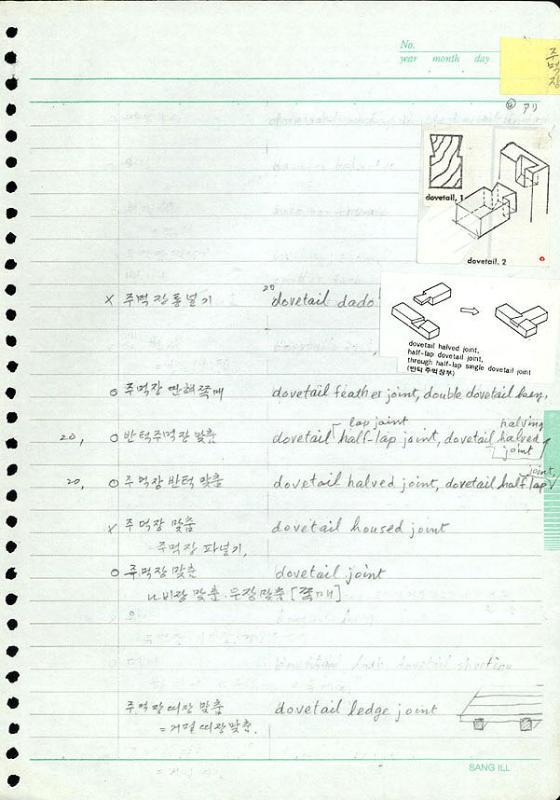 No.
year month day
주먹장
dovetail, 1
dovetail, 2
× 주먹장통넣기 20 dovetail dado
dovetail halved joint,
half-lap dovetail joint,
through half-lap single dovetail joint
(반턱 주먹장부)
o 주먹장 쪽매 dovetail feather joint, double dovetail key,
lap joint halving
20, o 반턱주먹장 맞춤 dovetail half-lap joint, dovetail halved joint
20, o 주먹장 반턱 맞춤 dovetail halved joint, dovetail half lap joint
× 주먹장 맞춤 dovetail housed joint
주먹장 파넣기,
o 주먹장 맞춤 dovetail joint
나비장 맞춤. 맞춤 [쪽매]
주먹장띠장 맞춤 dovetail ledge joint
= 거멀띠장맞춤.
SANG ILL